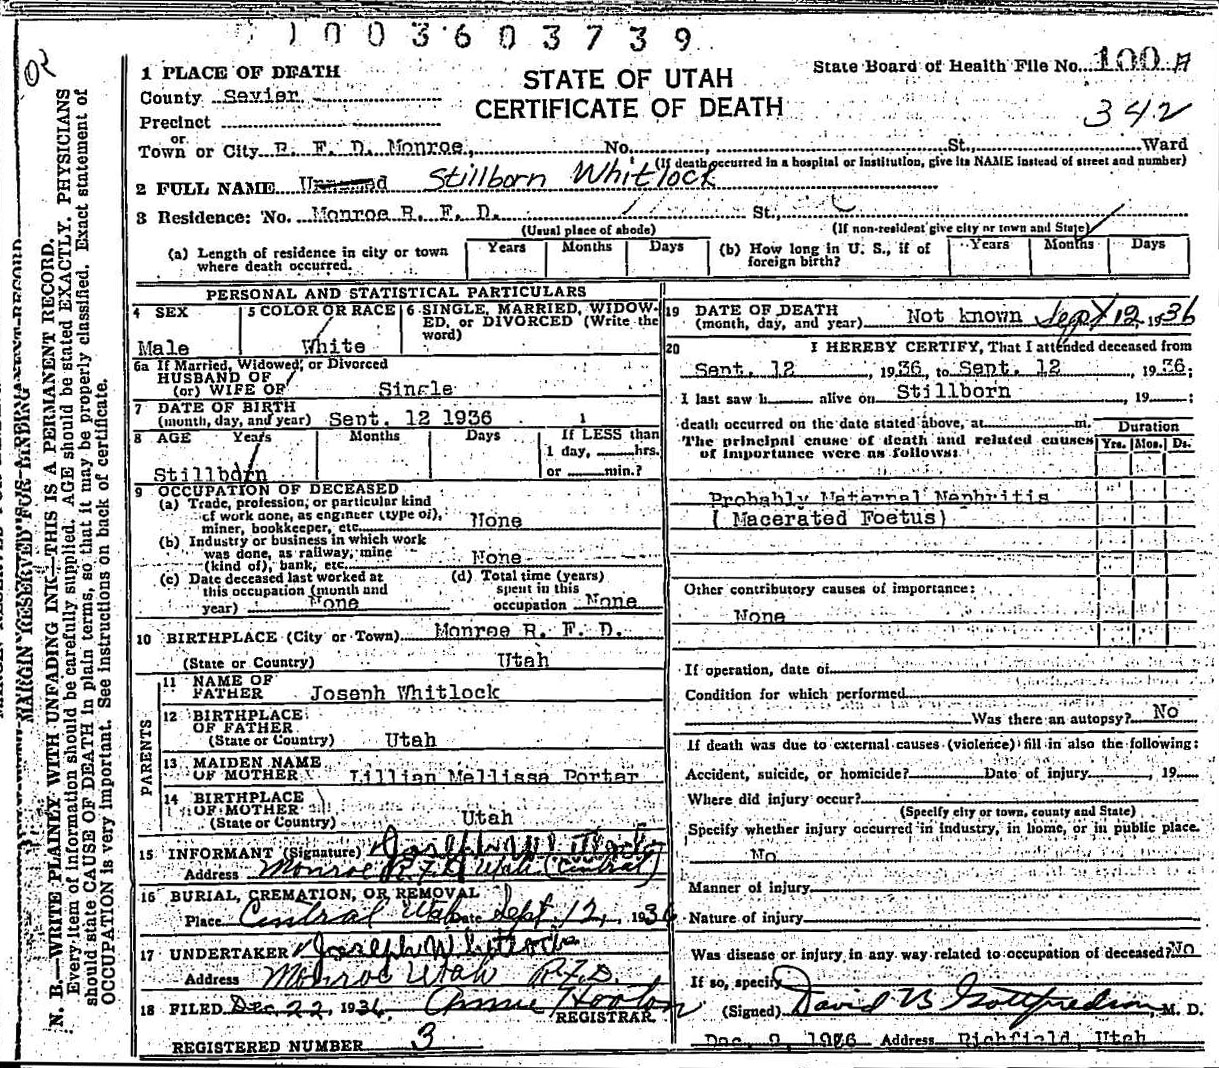 1003603739
1 PLACE OF DEATH
County Sevier
Precinct
or
Town or City R. F. D. Monroe, No. , St., Ward
(If death occurred in a hospital or institution, give its NAME instead of street and number)
STATE OF UTAH
CERTIFICATE OF DEATH
State Board of Health File No. 100 A
342
2 FULL NAME Unnamed Stillborn Whitlock
3 Residence: No. Monroe R. F. D. St.,
(Usual place of abode) (If non-resident give city or town and State)
(a) Length of residence in city or town where death occurred. Years Months Days (b) How long in U. S., if of foreign birth? Years Months Days
PERSONAL AND STATISTICAL PARTICULARS
4 SEX 5 COLOR OR RACE 6 SINGLE, MARRIED, WIDOW-
ED, or DIVORCED (Write the
word)
Male White
6a If Married, Widowed, or Divorced
HUSBAND OF
(or) WIFE OF Single
7 DATE OF BIRTH
(month, day, and year) Sept. 12 1936
8 AGE Years Months Days If LESS than
1 day, hrs.
Stillborn or min.?
9 OCCUPATION OF DECEASED
(a) Trade, profession, or particular kind
of work done, as engineer (type of),
miner, bookkeeper, etc. None
(b) Industry or business in which work
was done, as railway, mine
(kind of), bank, etc. None
(c) Date deceased last worked at (d) Total time (years)
this occupation (month and spent in this
year) None occupation None
10 BIRTHPLACE (City or Town) Monroe R. F. D.
(State or Country) Utah
PARENTS
11 NAME OF
FATHER Joseph Whitlock
12 BIRTHPLACE
OF FATHER
(State or Country) Utah
13 MAIDEN NAME
OF MOTHER Lillian Mellissa Porter
14 BIRTHPLACE
OF MOTHER
(State or Country) Utah
15 INFORMANT (Signature) Joseph Whitlock
Address Monroe R.F.D. Utah (Central)
16 BURIAL, CREMATION, OR REMOVAL
Place Central Utah Date Sept. 12, 1936
17 UNDERTAKER Joseph Whitlock
Address Monroe Utah R.F.D.
18 FILED Dec. 22, 1936. Annie Hooton
REGISTRAR
REGISTERED NUMBER 3
19 DATE OF DEATH
(month, day, and year) Not known Sept 12, 1936
20 I HEREBY CERTIFY, That I attended deceased from
Sept. 12, 1936, to Sept. 12, 1936;
I last saw h alive on Stillborn, 19 ;
death occurred on the date stated above, at m.
The principal cause of death and related causes
of importance were as follows:
Duration
Yrs. Mos. Ds.
Probably Maternal Nephritis
( Macerated Foetus)
Other contributory causes of importance:
None
If operation, date of
Condition for which performed
Was there an autopsy? No
If death was due to external causes (violence) fill in also the following:
Accident, suicide, or homicide? Date of injury , 19
Where did injury occur?
(Specify city or town, county and State)
Specify whether injury occurred in industry, in home, or in public place.
No
Manner of injury
Nature of injury
Was disease or injury in any way related to occupation of deceased? No
If so, specify
(Signed) David B Gottfredson, M. D.
Dec. 9, 1936 Address Richfield, Utah
MARGIN RESERVED FOR BINDING
N. B.—WRITE PLAINLY WITH UNFADING INK—THIS IS A PERMANENT RECORD.
Every item of information should be carefully supplied. AGE should be stated EXACTLY. PHYSICIANS
should state CAUSE OF DEATH in plain terms, so that it may be properly classified. Exact statement of
OCCUPATION is very important. See instructions on back of certificate.